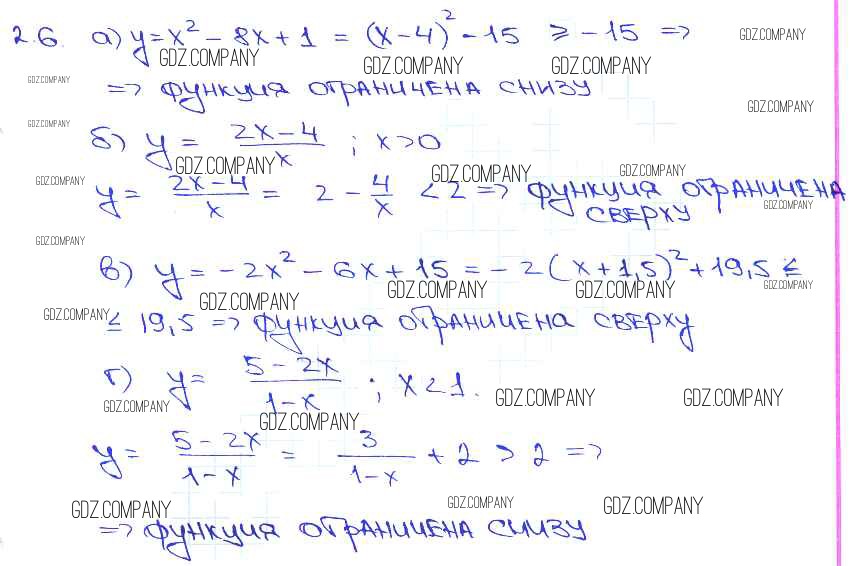 2.6. а) y=x² - 8x + 1 = (x-4)² - 15 ≥ -15 =>
GDZ.COMPANY
GDZ.COMPANY GDZ.COMPANY GDZ.COMPANY
GDZ.COMPANY
=> функция ограничена снизу
GDZ.COMPANY
GDZ.COMPANY
б) y = (2x-4)/x ; x>0
GDZ.COMPANY GDZ.COMPANY GDZ.COMPANY
GDZ.COMPANY
y = (2x-4)/x = 2 - 4/x < 2 => функция ограничена
GDZ.COMPANY
сверху
GDZ.COMPANY
в) y = -2x² - 6x + 15 = -2(x+1,5)² + 19,5 ≤
GDZ.COMPANY GDZ.COMPANY GDZ.COMPANY GDZ.COMPANY
GDZ.COMPANY
≤ 19,5 => функция ограничена сверху
г) y = (5-2x)/(1-x) ; x<1.
GDZ.COMPANY GDZ.COMPANY GDZ.COMPANY
GDZ.COMPANY
y = (5-2x)/(1-x) = 3/(1-x) + 2 > 2 =>
GDZ.COMPANY GDZ.COMPANY GDZ.COMPANY
=> функция ограничена снизу